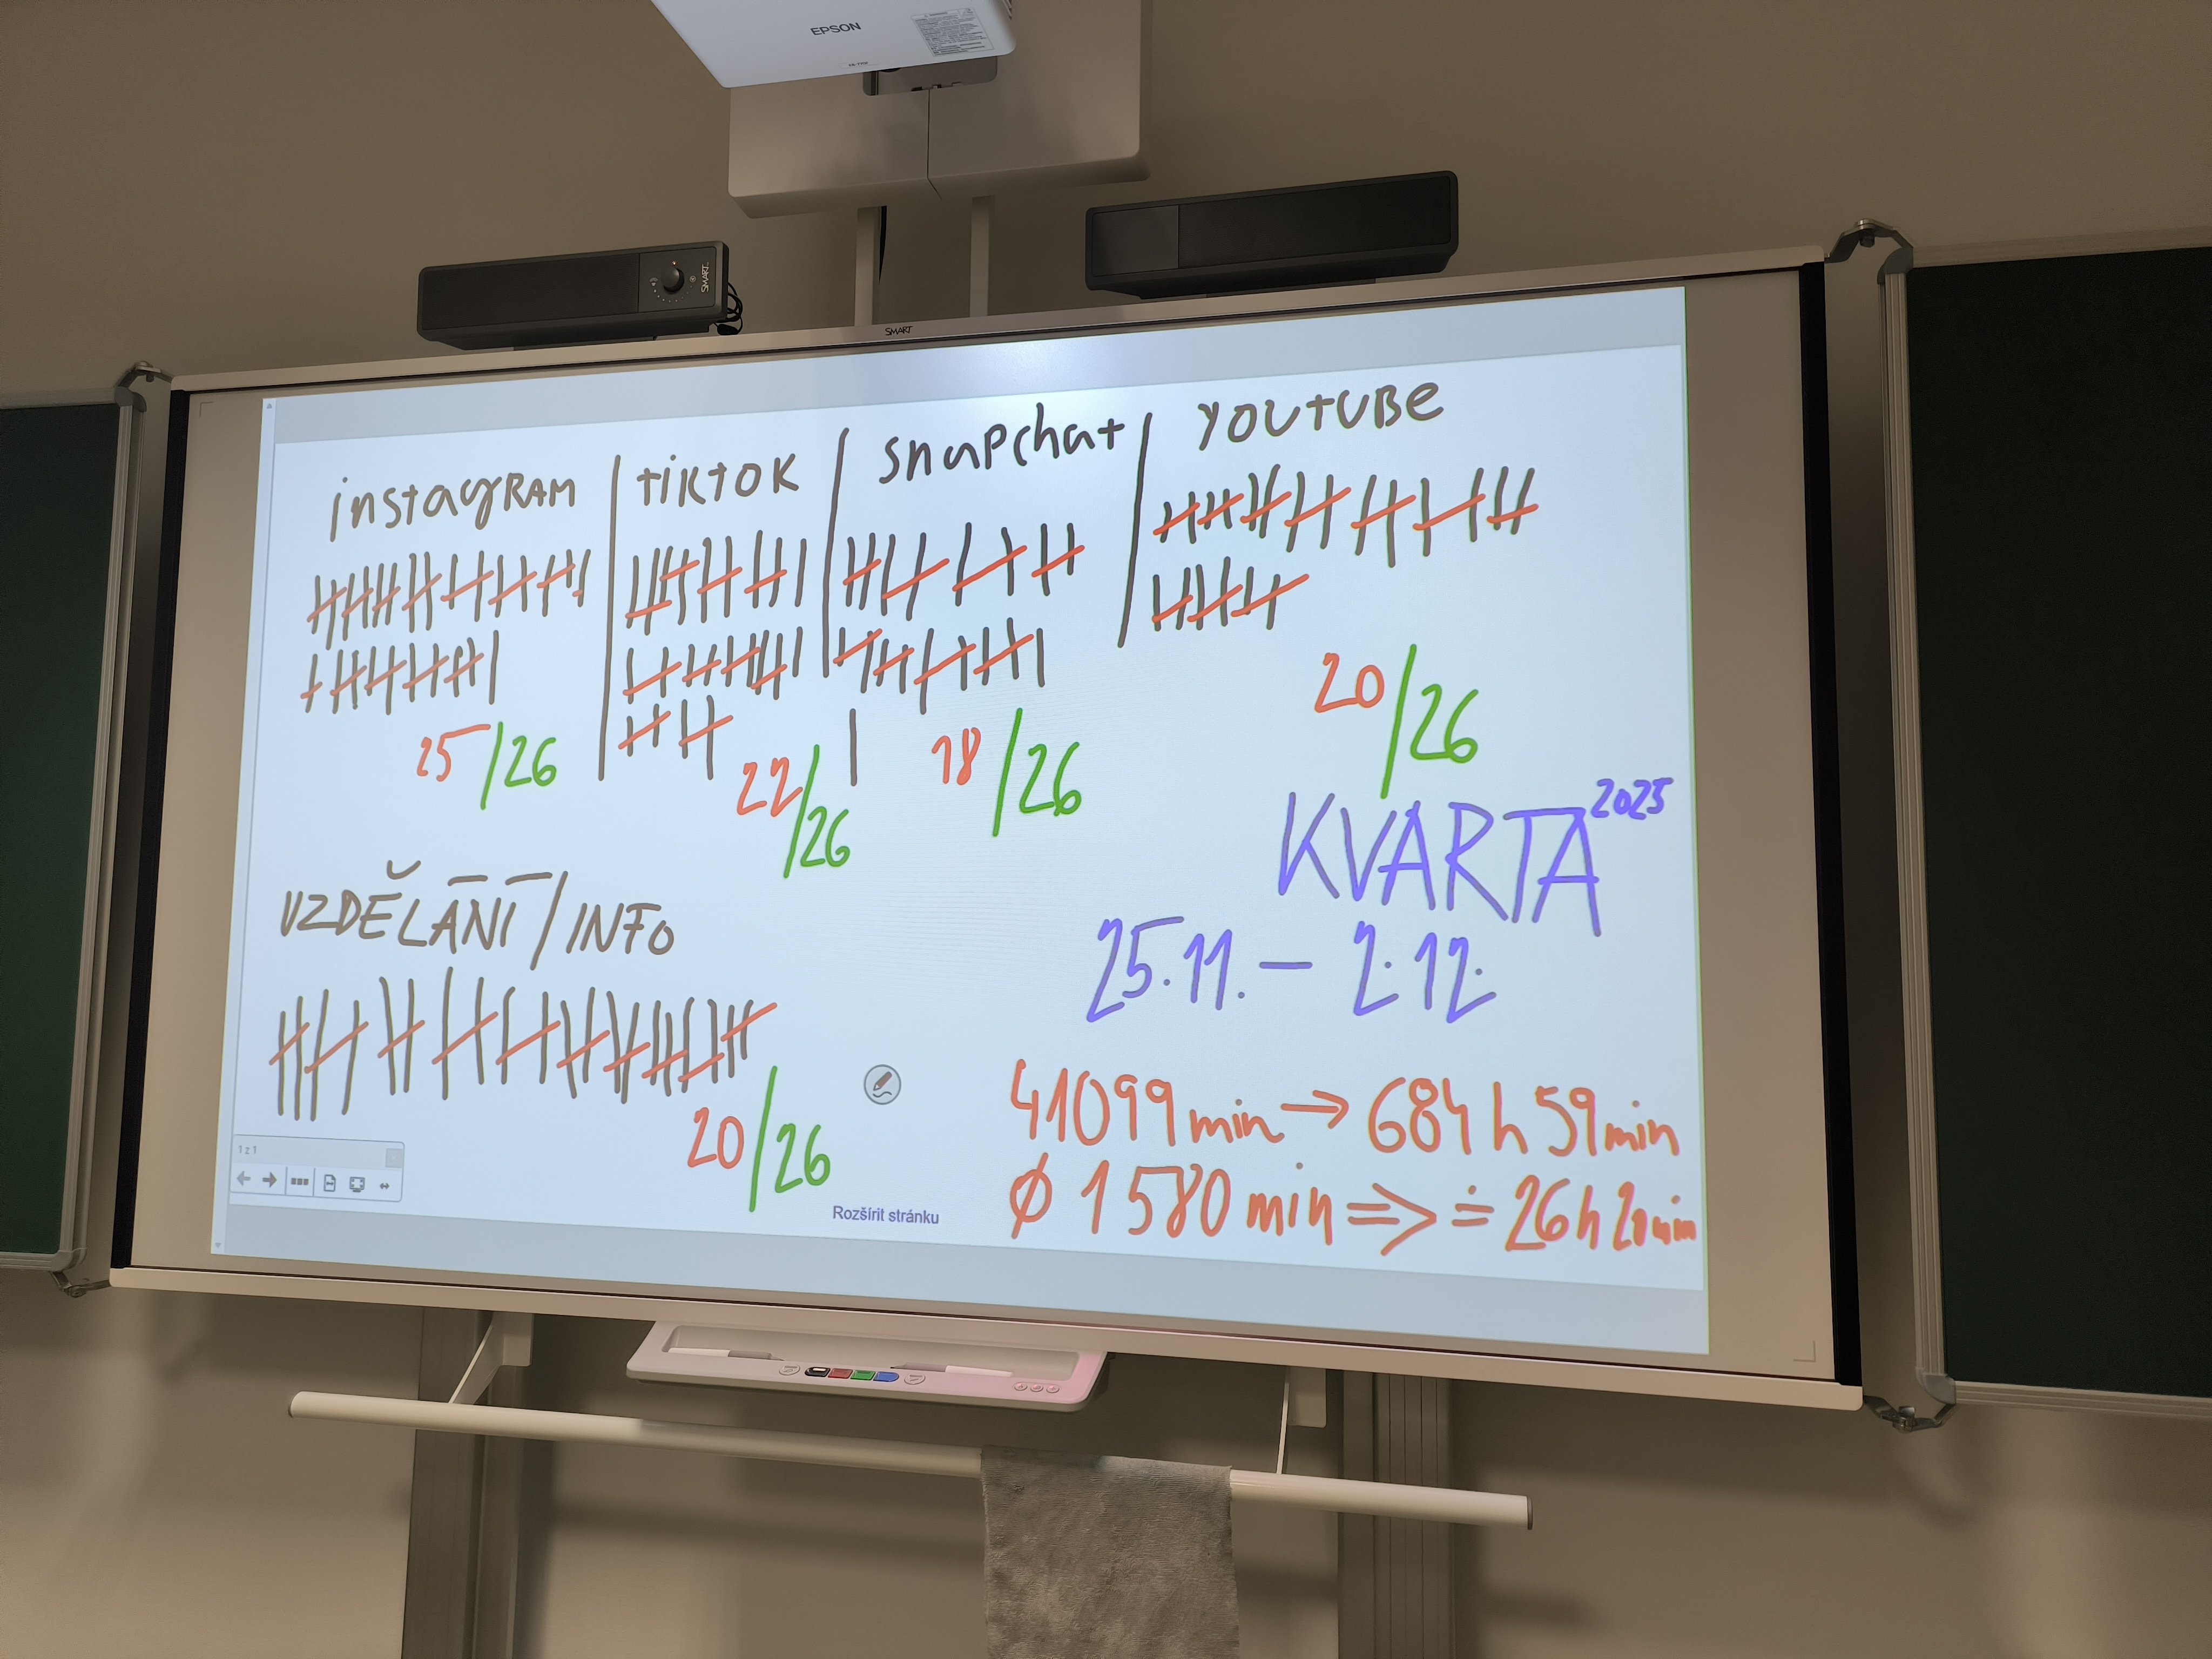 EPSON
SMART
SMART
instagram | tiktok | snapchat | YOUTUBE
25/26
22/26
18/26
20/26
KVARTA 2025
25.11. – 2.12.
VZDĚLÁNÍ/INFO
20/26
41099 min → 684 h 59 min
Ø 1580 min => ≐ 26 h 20 min
1 z 1
Rozšírit stránku